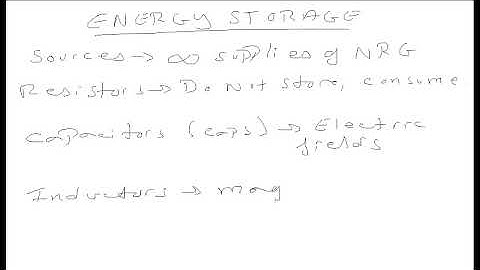 ENERGY STORAGE
Sources → ∞ supplies of NRG
Resistors → Do Not store, consume
Capacitors (caps) → Electric
fields
Inductors → mag